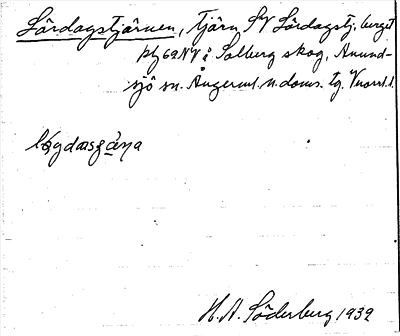 Lördagstjärnen, tjärn SV Lördagstj. berget
på 62NV i Solberg skog, Anund-
sjö sn. Ångerml. n. doms. tg. Vnorrl. l.
H. A. Söderberg 1932